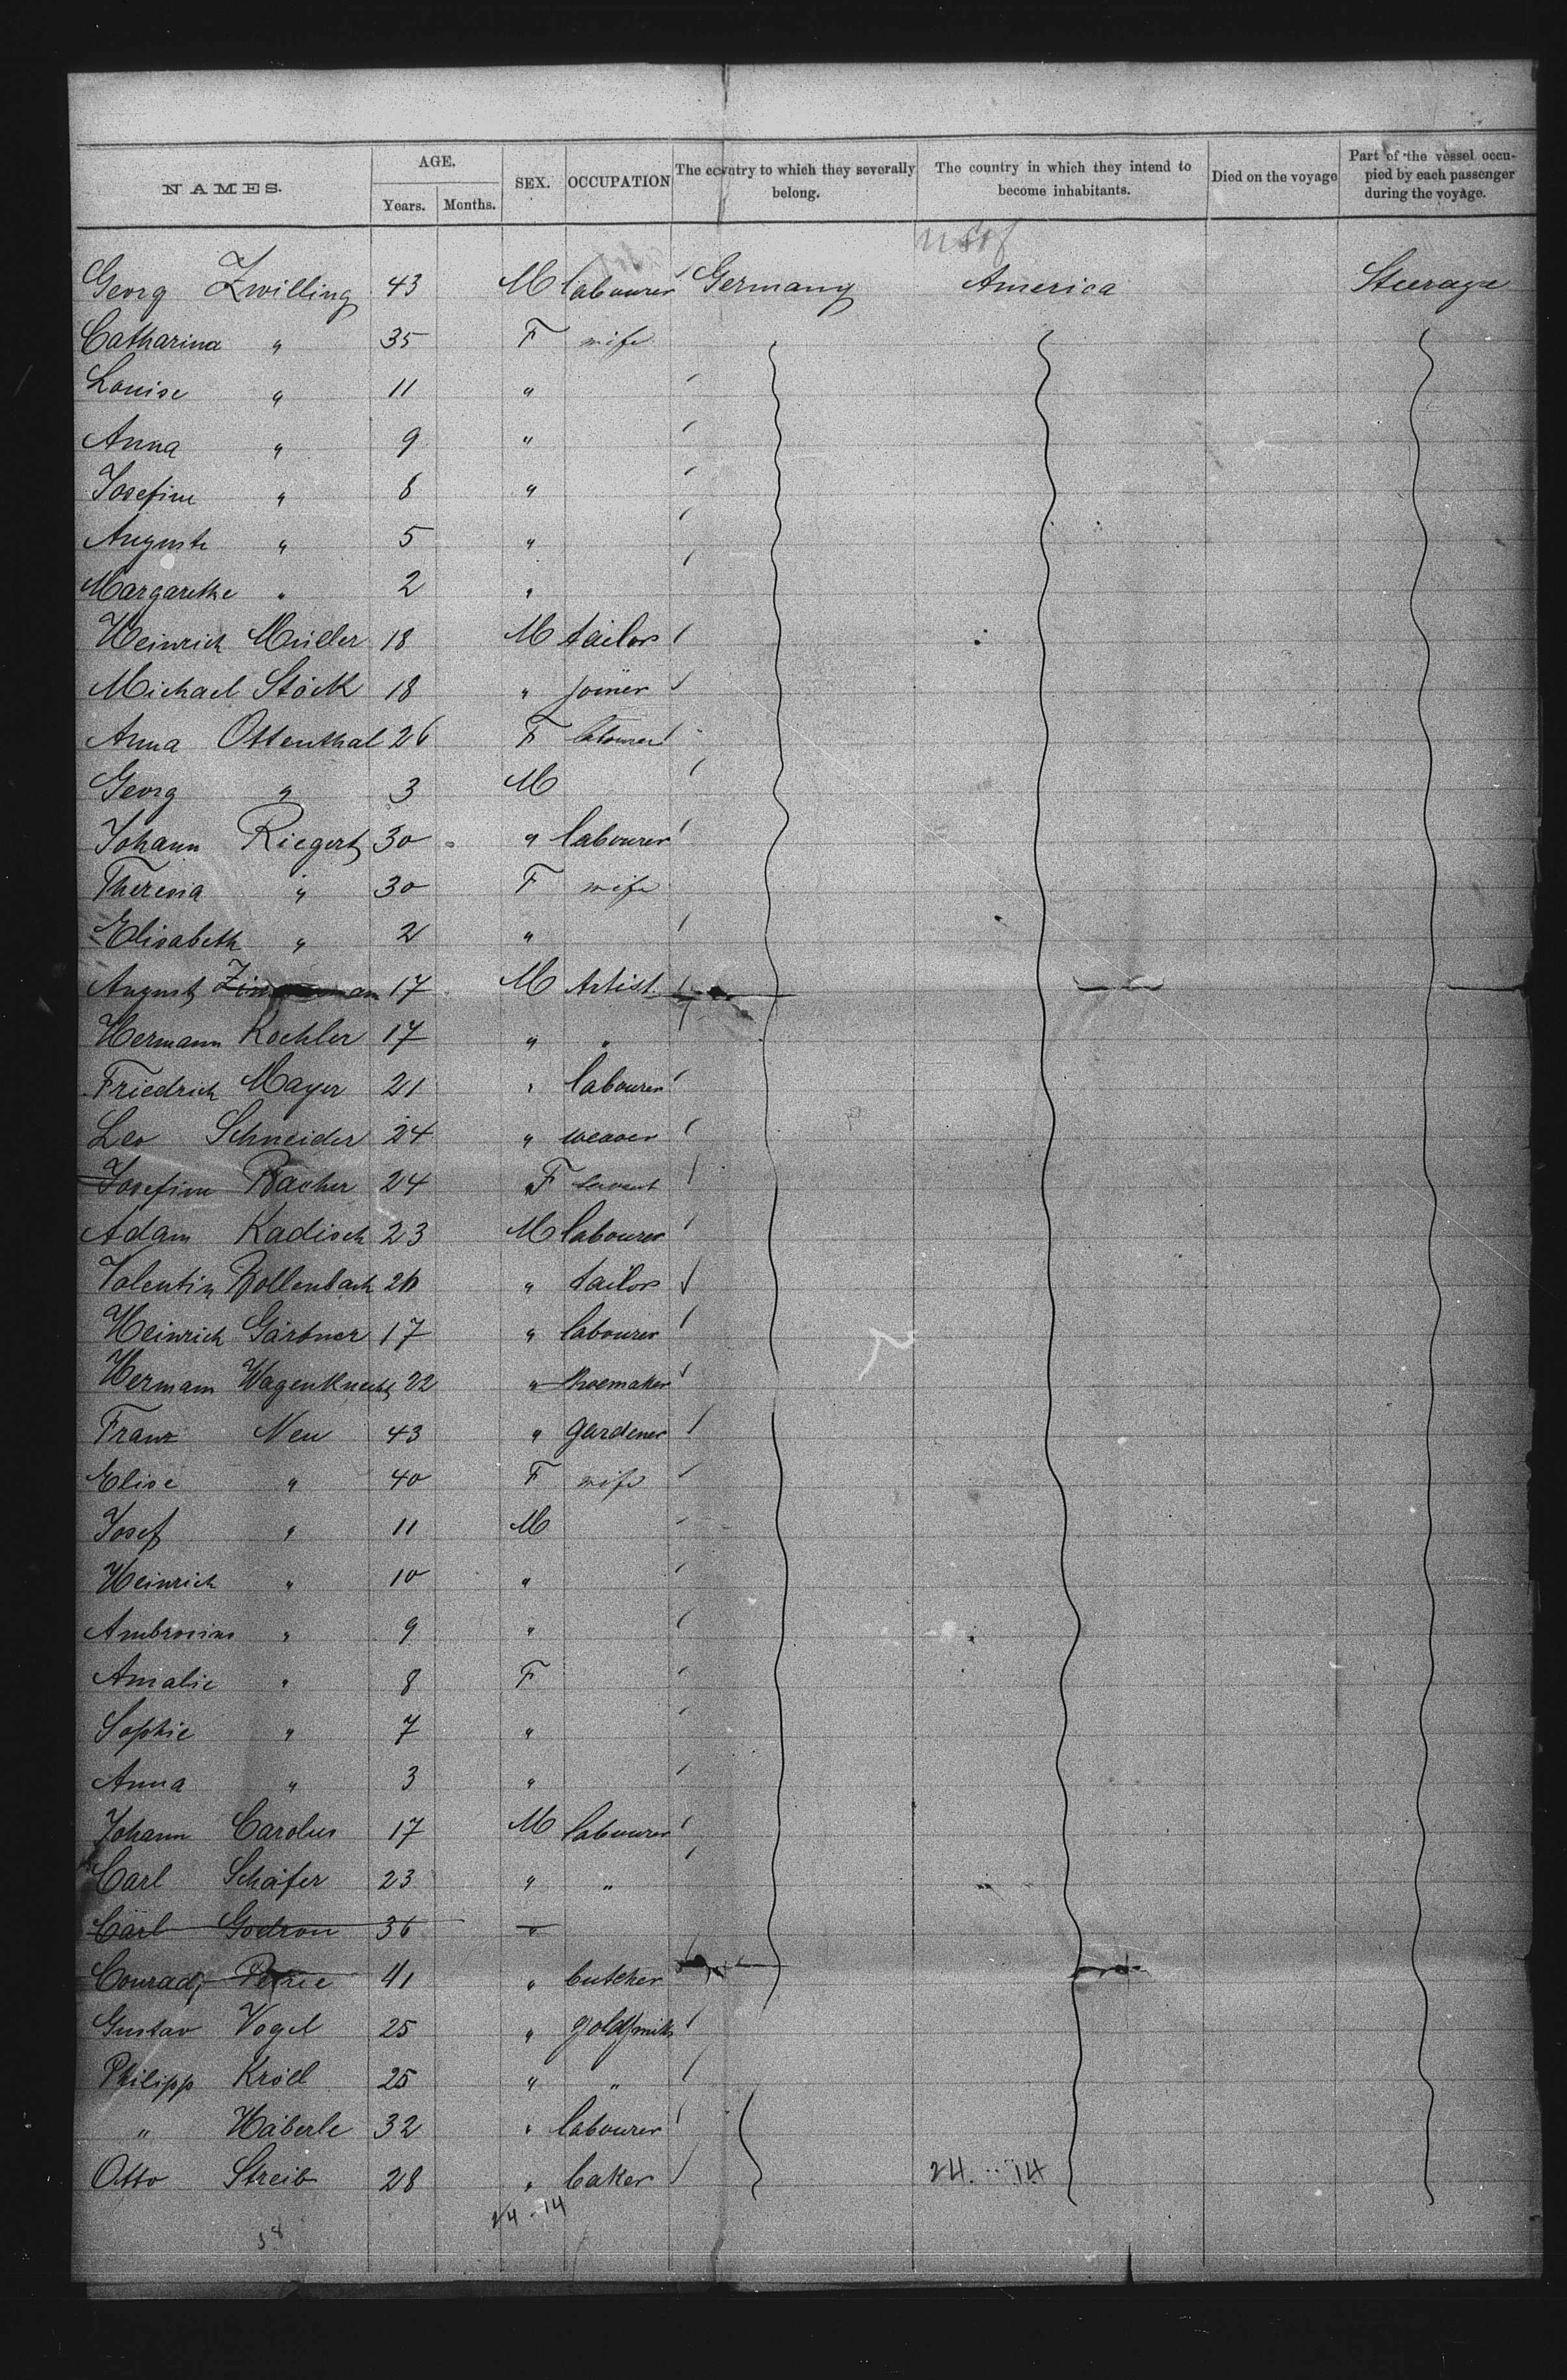 NAMES. AGE. Years. Months. SEX. OCCUPATION The country to which they severally belong. The country in which they intend to become inhabitants. Died on the voyage Part of the vessel occupied by each passenger during the voyage.
Georg Zwilling 43 M labourer Germany America Steerage
Catharina " 35 F wife
Louise " 11 "
Anna " 9 "
Josefine " 8 "
Auguste " 5 "
Margarethe " 2 "
Heinrich Müller 18 M tailor
Michael Stöck 18 " joiner
Anna Ottenthal 26 F labourer
Georg " 3 M
Johann Riegert 30 " labourer
Theresia " 30 F wife
Elisabeth " 2 "
August 17 M Artist
Hermann Koehler 17 " "
Friedrich Mayer 21 " labourer
Leo Schneider 24 " weaver
Josefine Bacher 24 F servant
Adam Kadisch 23 M labourer
Valentin Bollenbach 26 " tailor
Heinrich Gärtner 17 " labourer
Hermann Wagenknecht 22 " shoemaker
Franz Neu 43 " gardener
Elise " 40 F wife
Josef " 11 M
Heinrich " 10 "
Ambrosius " 9 "
Amalie " 8 F
Sophie " 7 "
Anna " 3 "
Johann Carolus 17 M labourer
Carl Schäfer 23 " "
Carl Godron 36 "
Conrad Petrie 41 " butcher
Gustav Vogel 25 " goldsmith
Philipp Kröll 25 " "
" Häberle 32 " labourer
Otto Streib 28 " baker 24 .. 14
24 - 14
38